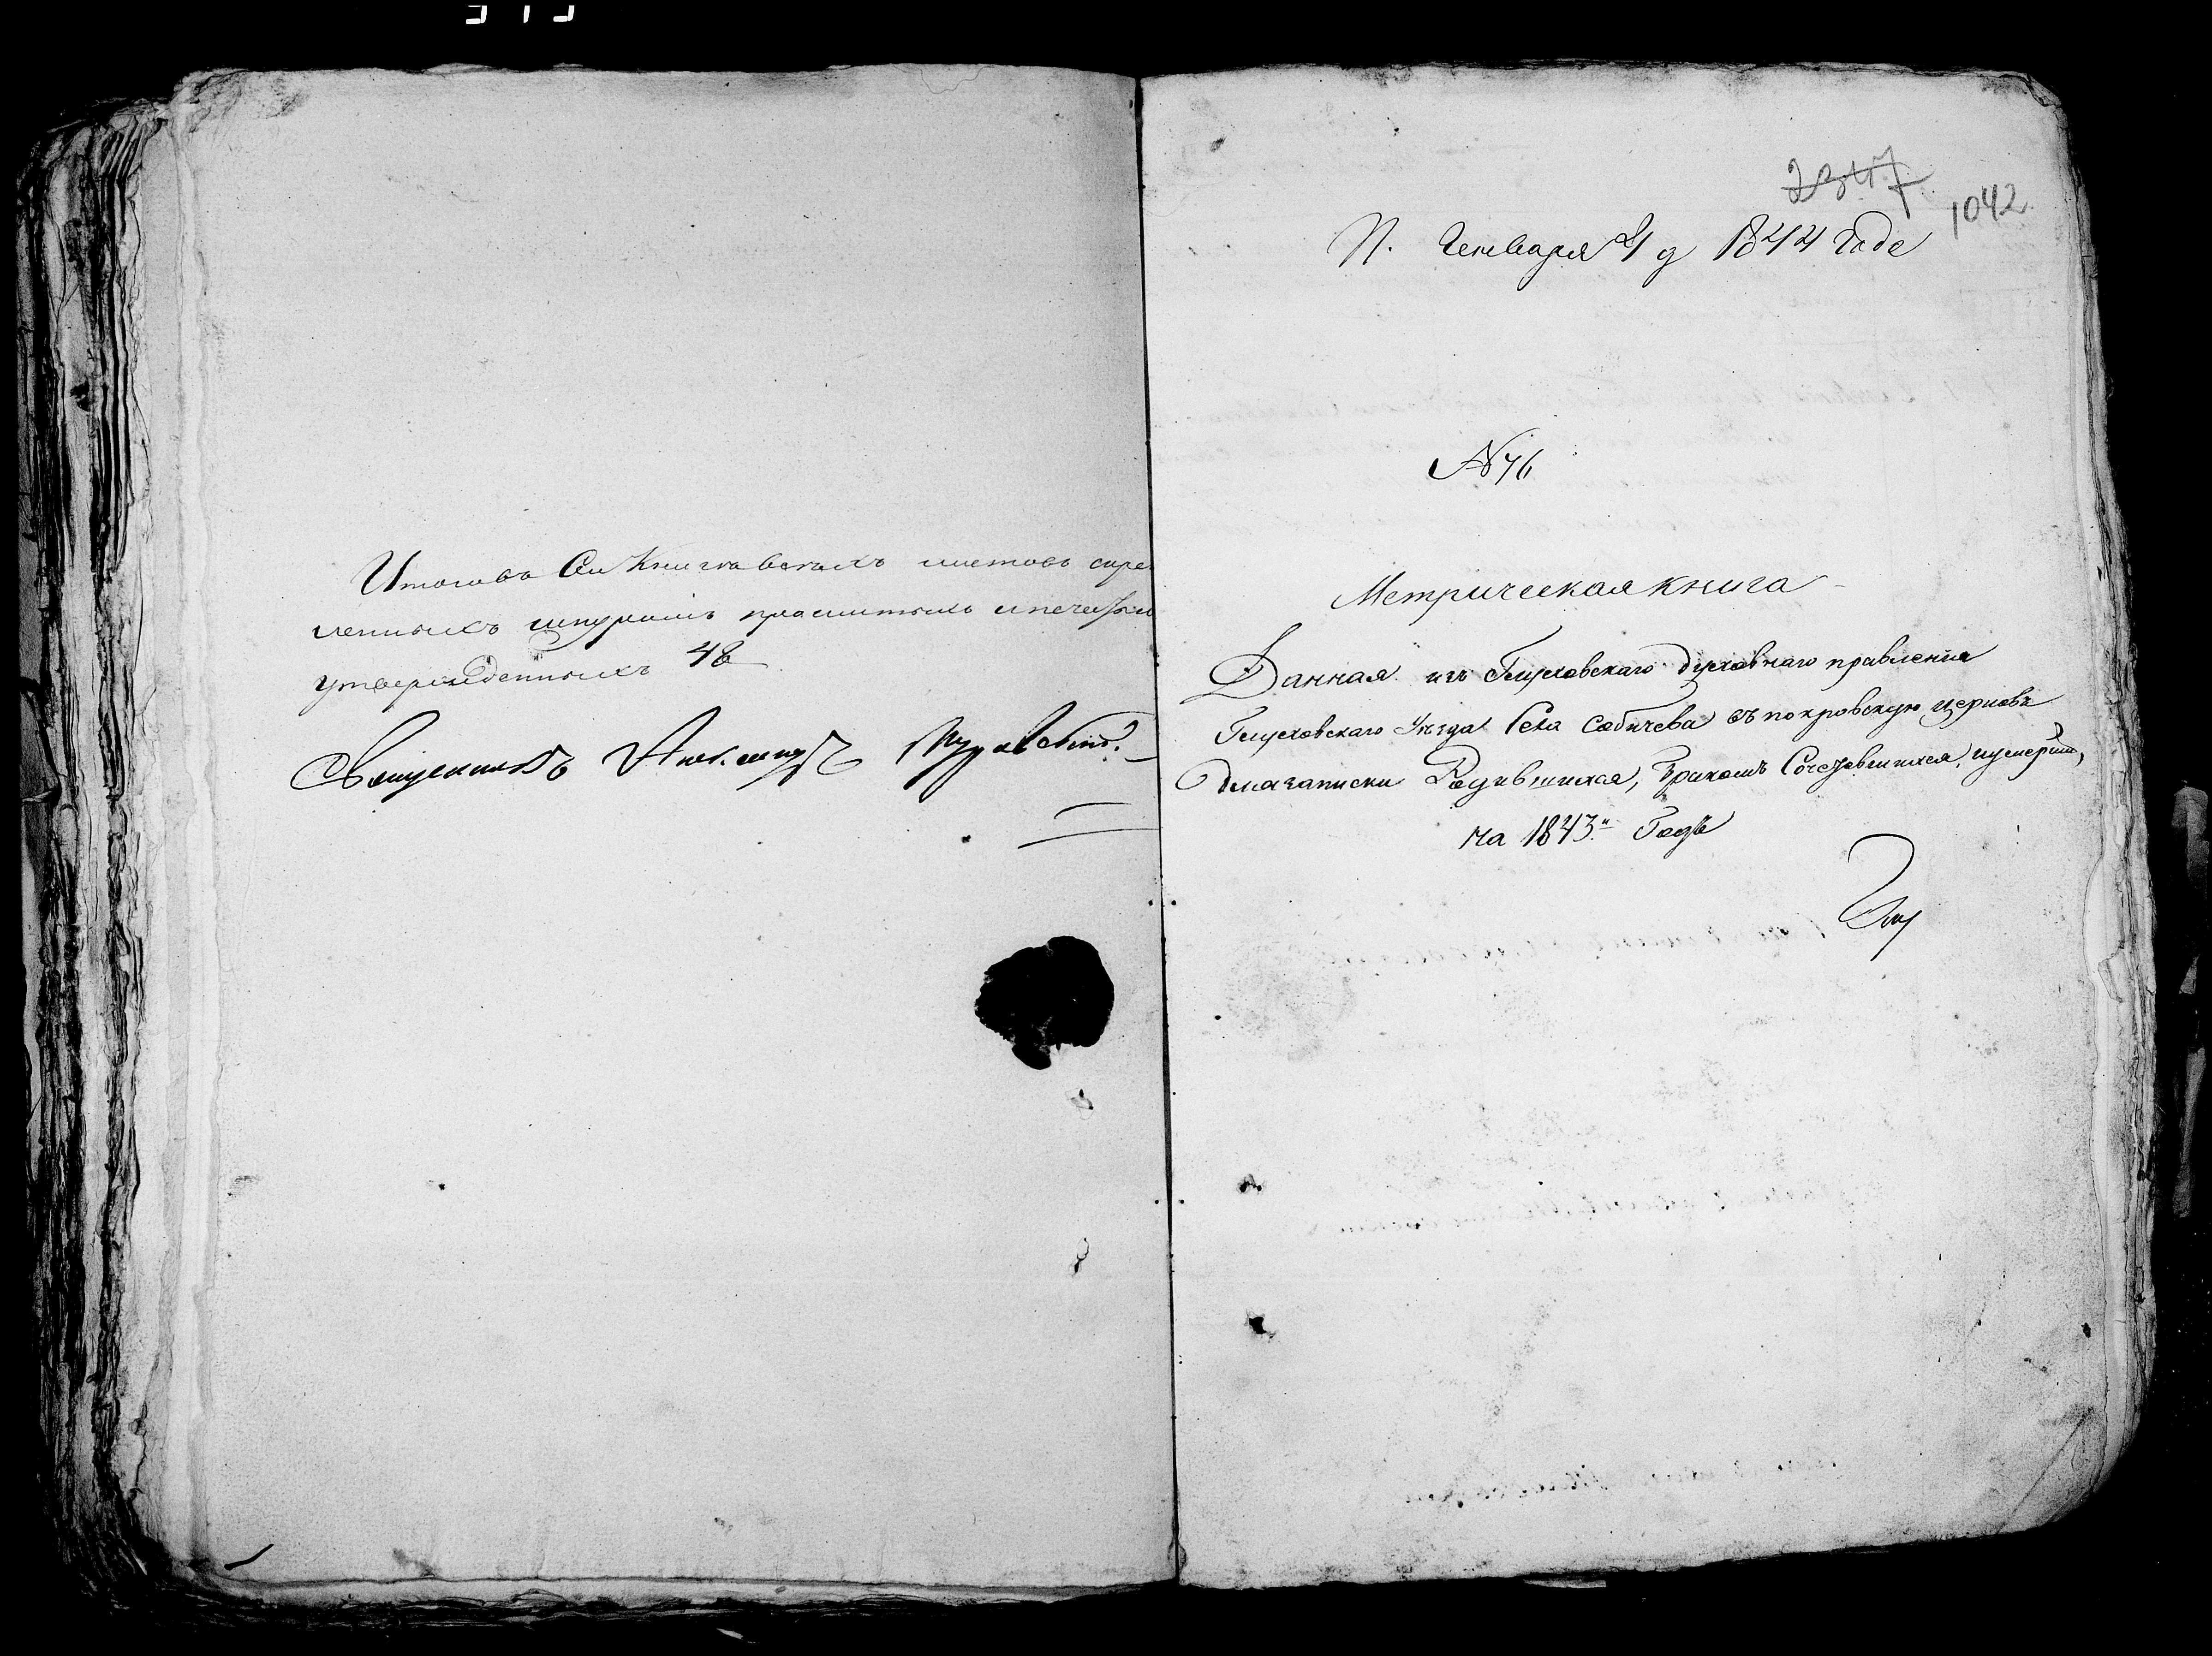 Итого въ Сей Книги всехъ листовъ скре
пленныхъ шнуромъ прошитыхъ и печатью
утвержденныхъ 48
Священникъ
2347
1042
П. Генваря 4 д 1844 Года
№ 76
Метрическая книга
Данная изъ Глуховскаго духовнаго правления
Глуховскаго Уезда Села Собичева въ покровскую церковь
для записки Родившихся, Бракомъ Сочетавшихся, и умерши,
на 1843.й Годъ